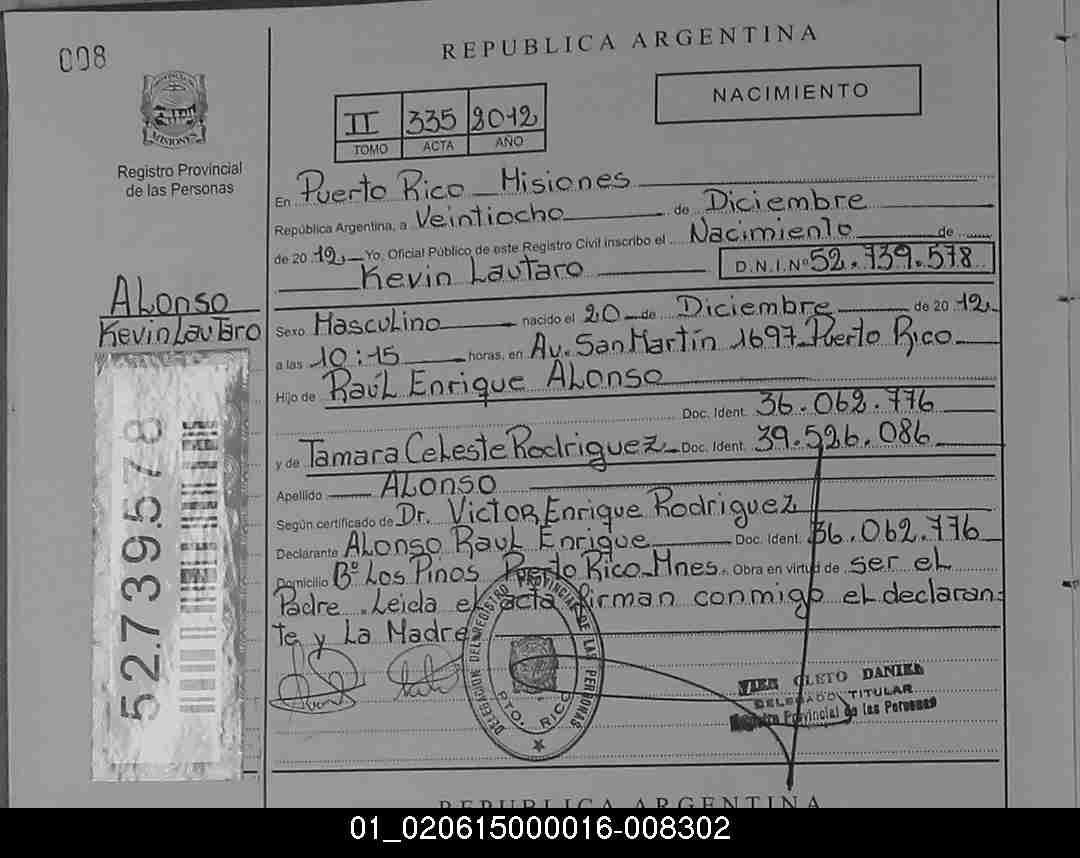 008
REPUBLICA ARGENTINA
NACIMIENTO
II 335 2012
TOMO ACTA AÑO
PROVINCIA DE MISIONES
Registro Provincial
de las Personas
En Puerto Rico Misiones
República Argentina, a Veintiocho de Diciembre
de 20 12 Yo, Oficial Público de este Registro Civil inscribo el Nacimiento de
Kevin Lautaro D.N.I.Nº 52.739.578
Alonso
Kevin Lautaro
Sexo Masculino nacido el 20 de Diciembre de 20 12
a las 10:15 horas, en Av. San Martín 1697 Puerto Rico
Hijo de Raúl Enrique Alonso
Doc. Ident. 36.062.776
y de Tamara Celeste Rodriguez Doc. Ident. 39.526.086
Apellido Alonso
Según certificado de Dr. Victor Enrique Rodriguez
Declarante Alonso Raul Enrique Doc. Ident. 36.062.776
Domicilio Bº Los Pinos Puerto Rico Mnes. Obra en virtud de ser el
Padre. Leida el acta firman conmigo el declaran-
te y La Madre
52.739.578
DELEGACION DEL REGISTRO PROVINCIAL DE LAS PERSONAS
PTO. RICO
CLETO DANIEL
DELEGADO TITULAR
Registro Provincial de las Personas
REPUBLICA ARGENTINA
01_020615000016-008302